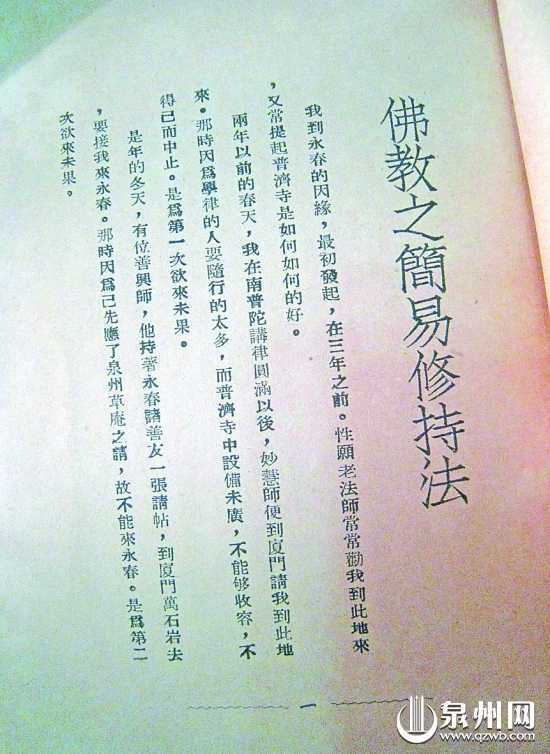 佛教之簡易修持法
我到永春的因緣，最初發起，在三年之前。性願老法師常常勸我到此地來
，又常提起普濟寺是如何如何的好。
兩年以前的春天，我在南普陀講律圓滿以後，妙慧師便到廈門請我到此地
來。那時因爲學律的人要隨行的太多，而普濟寺中設備未廣，不能够收容，不
得已而中止。是爲第一次欲來未果。
是年的冬天，有位善興師，他持著永春諸善友一張請帖，到廈門萬石岩去
，要接我來永春。那時因爲已先應了泉州草庵之請，故不能來永春。是爲第二
次欲來未果。
一
泉州网
www.qzwb.com